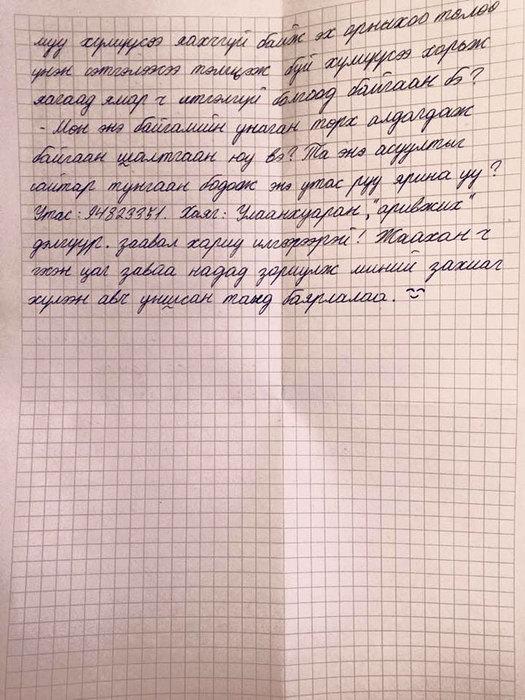 муу хүмүүсээ яахчгүй байж эх орныхоо төлөө
үнэн сэтгэлээсээ тэмцэж буй хүмүүсээ хорьж
яагаад ямар ч итгэлгүй болгоод байгаан бэ?
- Мөн энэ байгалийн унаган төрх алдагдаж
байгаан шалтгаан юу вэ? Та энэ асуултыг
сайтар тунгаан бодож энэ утас руу ярина уу?
Утас: 94823351. Хаяг: Улаанхуаран, "аривжих"
дэлгүүр. заавал хариу илгээгээрэй! Жаахан ч
гэсэн цаг заваа надад зориулж миний захиаг
хүлэн авч уншсан танд баярлалаа.